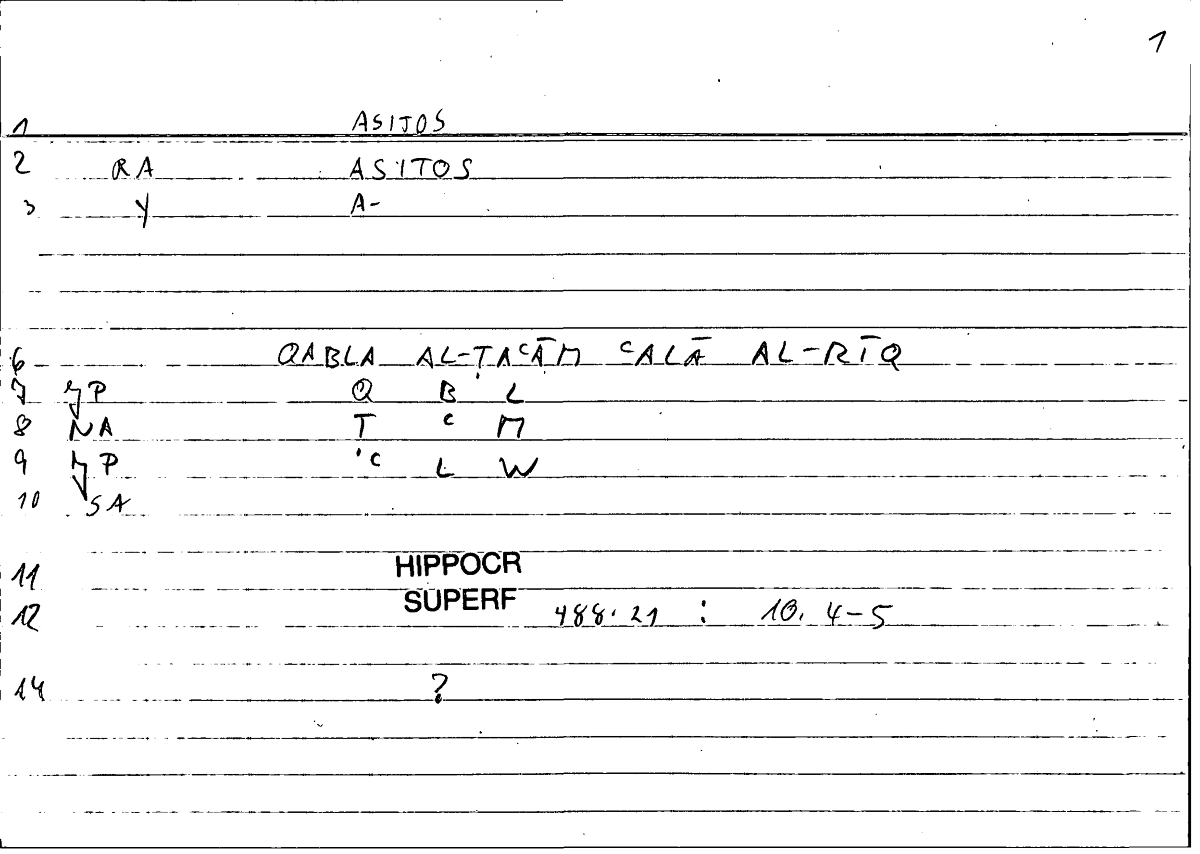 1
1 ASITOS
2 RA ASITOS
3 Y A-
6 QABLA AL-ṬAᶜĀM ᶜALĀ AL-RĪQ
7 P Q B L
8 NA T ᶜ M
9 P ᶜ L W
10 SA
11 HIPPOCR
12 SUPERF 488.21 : 10. 4-5
14 ?